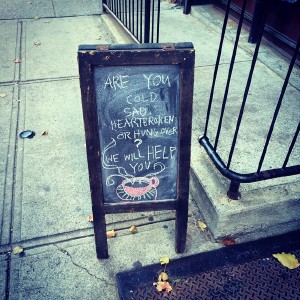 ARE YOU
COLD
SAD
HEARTBROKEN
OR HUNGOVER
?
WE WILL HELP
YOU